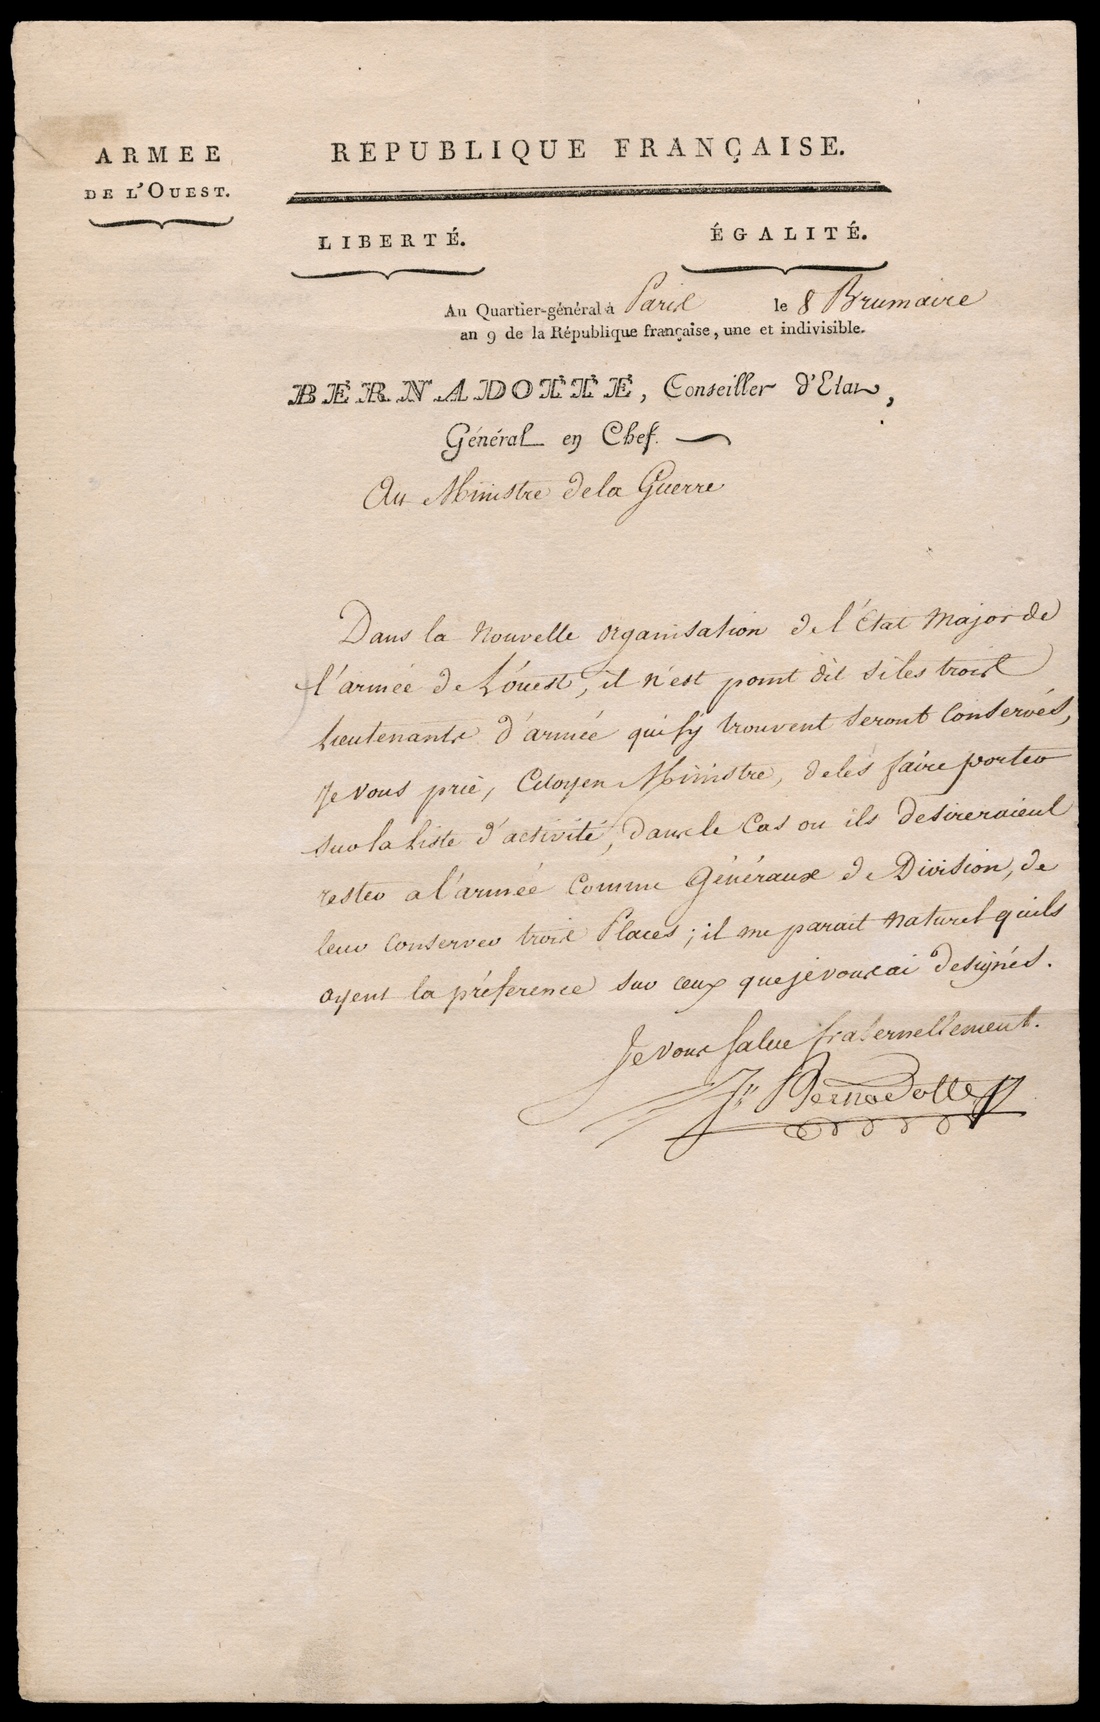 ARMEE
DE L'OUEST.
REPUBLIQUE FRANÇAISE.
LIBERTÉ.
ÉGALITÉ.
Au Quartier-général à Paris le 8 Brumaire
an 9 de la République française, une et indivisible.
BERNADOTTE, Conseiller d'Etat,
Général en Chef.
Au Ministre de la Guerre
Dans la Nouvelle organisation de l'État Major de
l'armée de L'ouest, il n'est point dit si les trois
Lieutenants d'armée qui s'y trouvent seront Conservés,
Je vous prie, Citoyen Ministre, de les faire porter
sur la Liste d'activité, dans le Cas ou ils desireraient
rester a l'armée Comme Généraux de Division, de
leur Conserver trois Places; il me parait naturel qu'ils
ayent la préference sur ceux que je vous ai designés.
Je vous salue fraternellement.
Jn Bernadotte